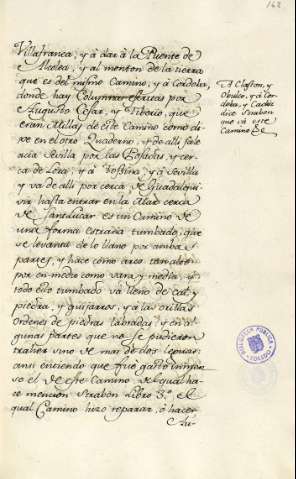 162
Villafranca, y à dar à la Puente de
Alcolea, y al menton de la tierra
que es del mismo Camino, y à Cordova,
donde hay Columnas escritas por
Augusto Cesar, y Tiberio, que
eran Millas de este Camino como di-
xe en el otro Quaderno, y de alli sale
acia Sevilla por las Posadas, y cer-
ca de Lora, y à Tossina, y à Sevilla
y va de alli por cerca de Guadalqui-
vir hasta entrar en la Mar cerca
de Sanlucar es un Camino de
una forma estrada tumbado, que
se levanta de lo llano por ambas
partes, y hace como arco tan alto
por en medio como vara y media, y
todo ello tumbado va lleno de cal y
piedra, y guijarros, y à las orillas
Ordenes de piedras labradas, y en al-
gunas partes que no se pudieron
traher sino de mas de dos leguas:
ansi entiendo que fué gasto inmen-
so el de este Camino del qual ha-
ce mencion Strabon Libro 3.º el
qual Camino hizo reparar, ò hacer
A Claston, y
Obulco, y à Cor-
doba, y Cadiz
dice Strabon
que va este
Camino
BIBLIOTECA PUBLICA
TOLEDO